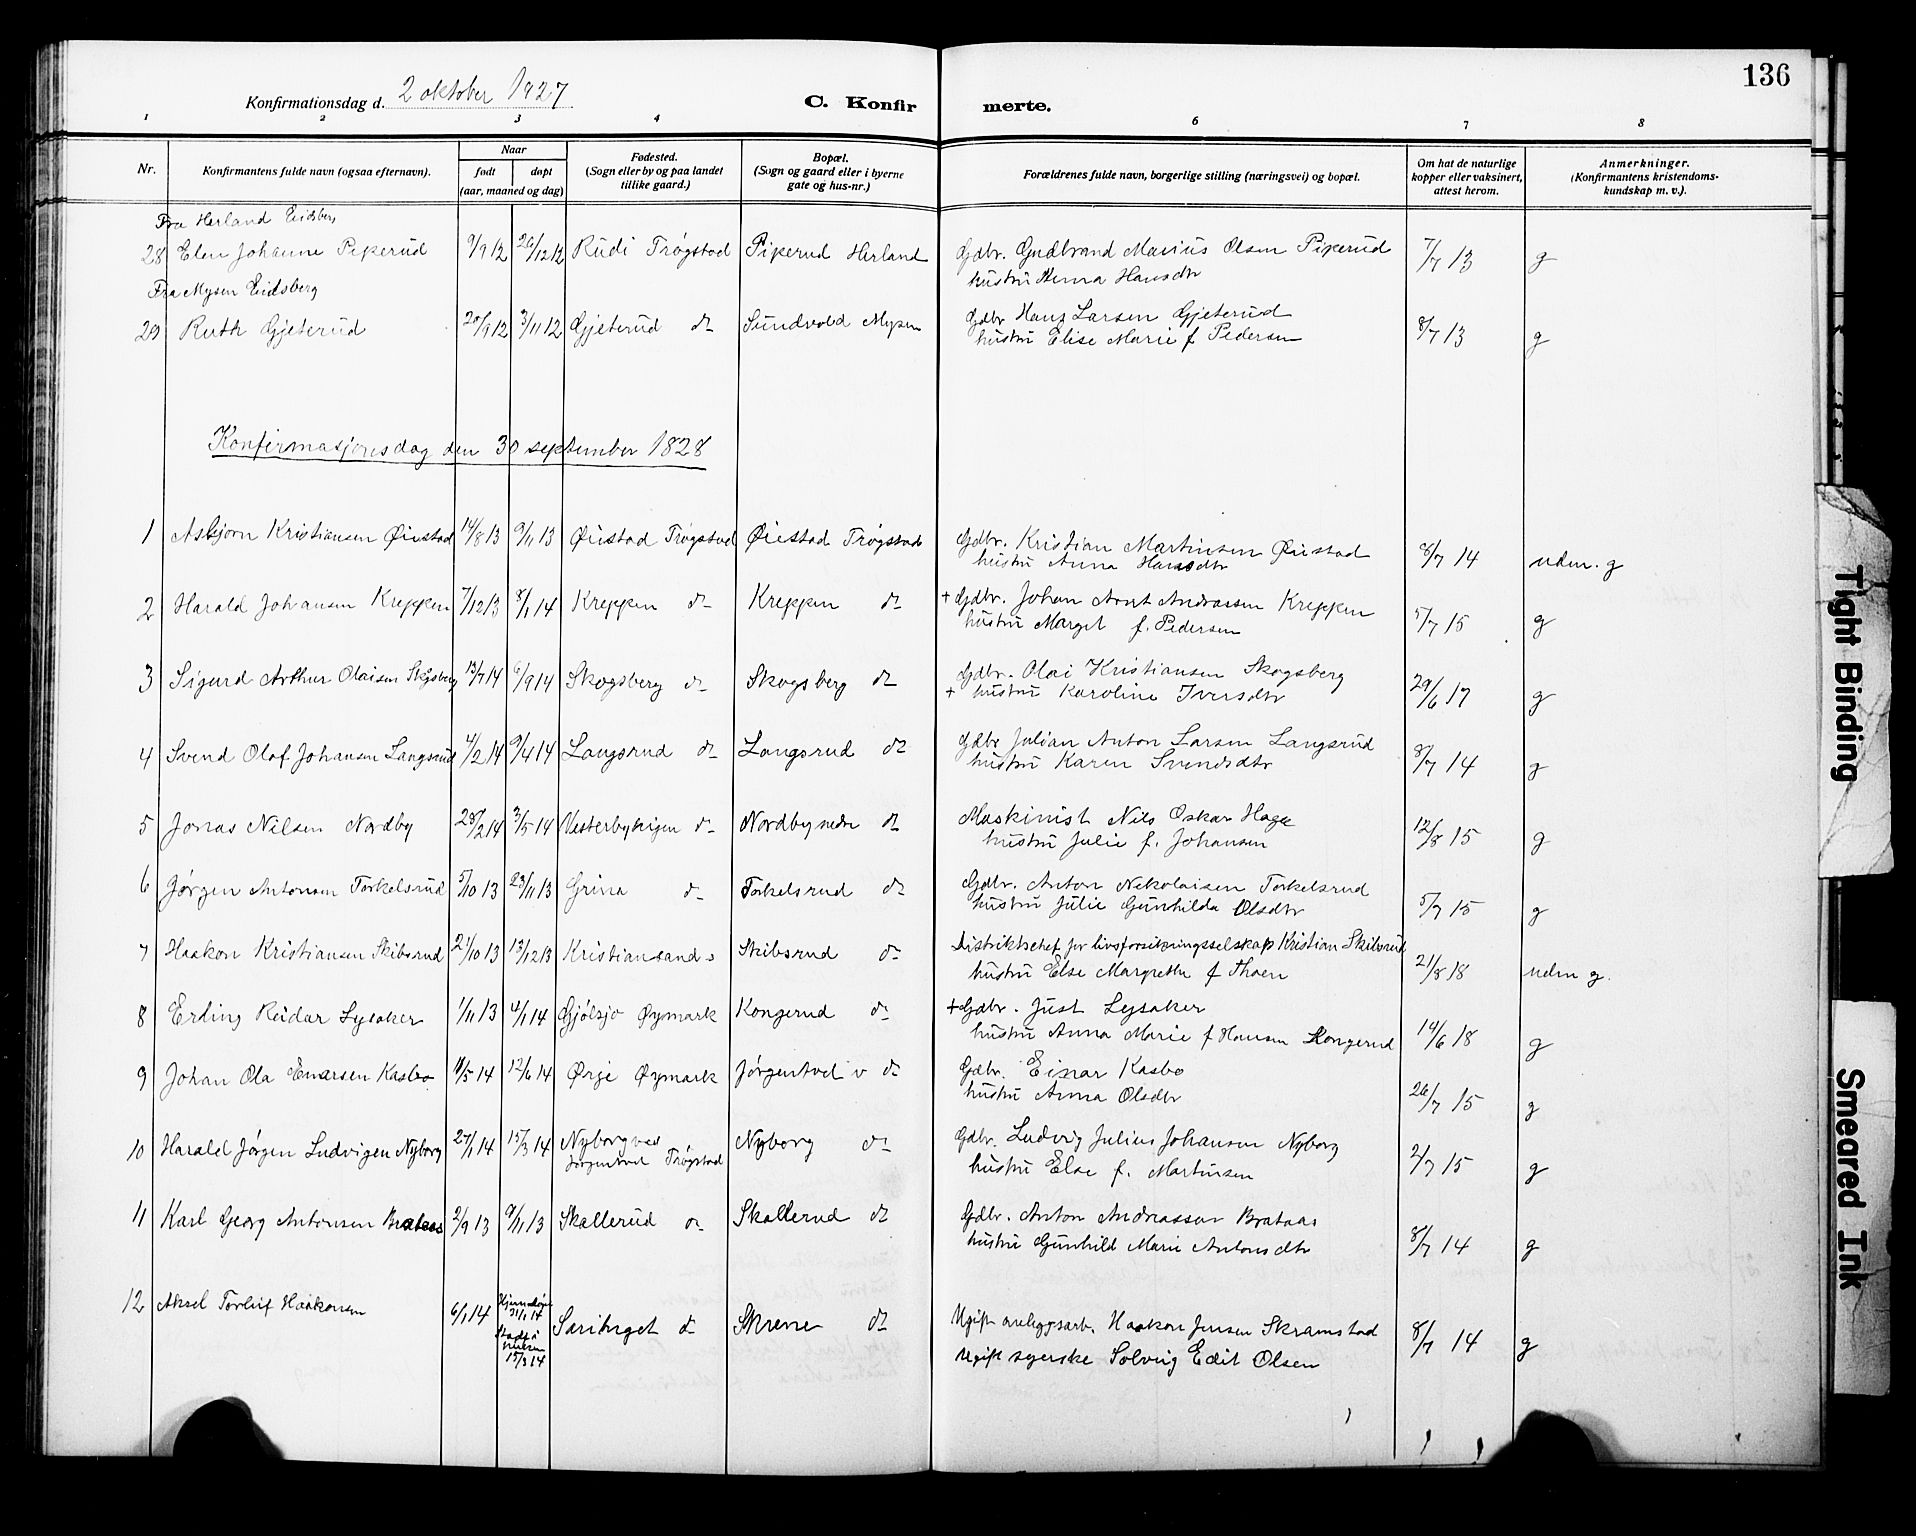 136
Konfirmationsdag d. 2 oktober 1927
C. Konfirmerte.
1 2 3 4 6 7 8
Nr.
Konfirmantens fulde navn (ogsaa efternavn).
Naar
født
døpt
(aar, maaned og dag)
Fødested.
(Sogn eller by og paa landet
tillike gaard.)
Bopæl.
(Sogn og gaard eller i byerne
gate og hus-nr.)
Forældrenes fulde navn, borgerlige stilling (næringsvei) og bopæl.
Om hat de naturlige
kopper eller vaksinert,
attest herom.
Anmerkninger.
(Konfirmantens kristendoms-
kundskap m. v.).
Fra Herland Eidsberg
28 Elen Johanne Pikerud 9/9 12 26/12 12 Rudi Trøgstad Pikerud Herland Gdbr. Gudbrand Marius Olsen Pikerud 7/7 13 g
hustru Anna Hansdtr
Fra Mysen Eidsberg
29 Ruth Gjeterud 20/9 12 3/11 12 Gjeterud do Sundvold Mysen Gdbr Hans Larsen Gjeterud 8/7 13 g
hustru Elise Marie f Pedersen
Konfirmasjonsdag den 30 september 1828
1 Asbjørn Kristiansen Øiestad 14/8 13 9/11 13 Øiestad Trøgstad Øiestad Trøgstad Gdbr. Kristian Martinsen Øiestad 8/7 14 udm. g
hustru Anna Hansdtr
2 Harald Johansen Kreppen 7/12 13 8/1 14 Kreppen do Kreppen do + Gdbr. Johan Arnt Andreassen Kreppen 5/7 15 g
hustru Marget f. Pedersen
3 Sigurd Arthur Olaisen Skogsberg 13/7 14 6/9 14 Skogsberg do Skogsberg do Gdbr. Olai Kristiansen Skogsberg 29/6 17 g
+ hustru Karoline Iversdtr
4 Svend Olaf Johansen Langsrud 4/2 14 9/4 14 Langsrud do Langsrud do Gdbr Julian Anton Larsen Langsrud 8/7 14 g
hustru Karen Svendsdtr
5 Jonas Nilsen Nordby 28/2 14 3/5 14 Vesterbyeigen do Nordby nedre do Maskinist Nils Oskar Hage 12/8 15 g
hustru Julie f. Johansen
6 Jørgen Antonsen Torkelsrud 5/10 13 23/11 13 Grina do Torkelsrud do Gdbr. Anton Nikolaisen Torkelsrud 5/7 15 g
hustru Julie Gunhilda Olsdtr
7 Haakon Kristiansen Skibsrud 21/10 13 13/12 13 Kristiansand s Skibsrud do Distriktschef for livsforsikringsselskap Kristian Skibsrud 21/8 18 udm g.
hustru Else Margrethe f Thoen
8 Erling Reidar Lysaker 1/11 13 4/1 14 Gjølsjø Øymark Kongerud do + Gdbr. Just Lysaker 14/6 18 g
hustru Anna Marie f Hansen Kongerud
9 Johan Ola Enarsen Kasbo 11/5 14 12/6 14 Ørje Øymark Jørgentvet v do Gdbr. Einar Kasbo 26/7 15 g
hustru Anna Olsdtr
10 Harald Jørgen Ludvigsen Nyborg 27/1 14 15/3 14 Nyborg ved Nyborg do Gdbr. Ludvig Julius Johansen Nyborg 2/7 15 g
Jørgentvet Trøgstad hustru Else f. Martinsen
11 Karl Georg Antonsen Brataas 2/9 13 9/11 13 Skallerud do Skallerud do Gdbr. Anton Andreassen Brataas 8/7 14 g
hustru Gunhild Marie Antonsdtr
12 Aksel Torleif Haakonsen 6/1 14 Hjemmedøpt 31/1 14 15/3 14 do Skrene do Ugift anleggsarb. Haakon Jensen Skramstad 8/7 14 g
Ugift syerske Solveig Edit Olsen
Tight Binding
Smeared Ink